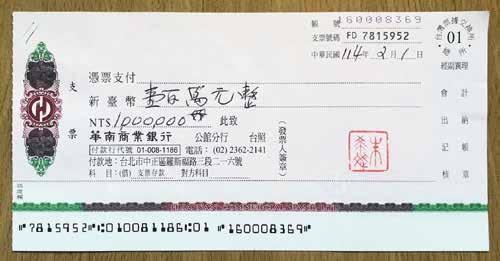 帳 號 160008369
支票號碼 FD 7815952
中華民國 114 年 2 月 1 日
台灣票據交換所
01
經副襄理
會計
出納
記帳
核章
支票
憑票支付
新臺幣 壹百萬元整
NT$ 1,000,000 此致
華南商業銀行 公館分行 台照
付款行代號 01-008-1186 電話：(02) 2362-2141
付款地：台北市中正區羅斯福路三段二一六號
科目：(借) 支票存款 對方科目
(發票人簽章)
⑈7815952⑈ ⑆010081186⑆01 ⑈160008369⑈